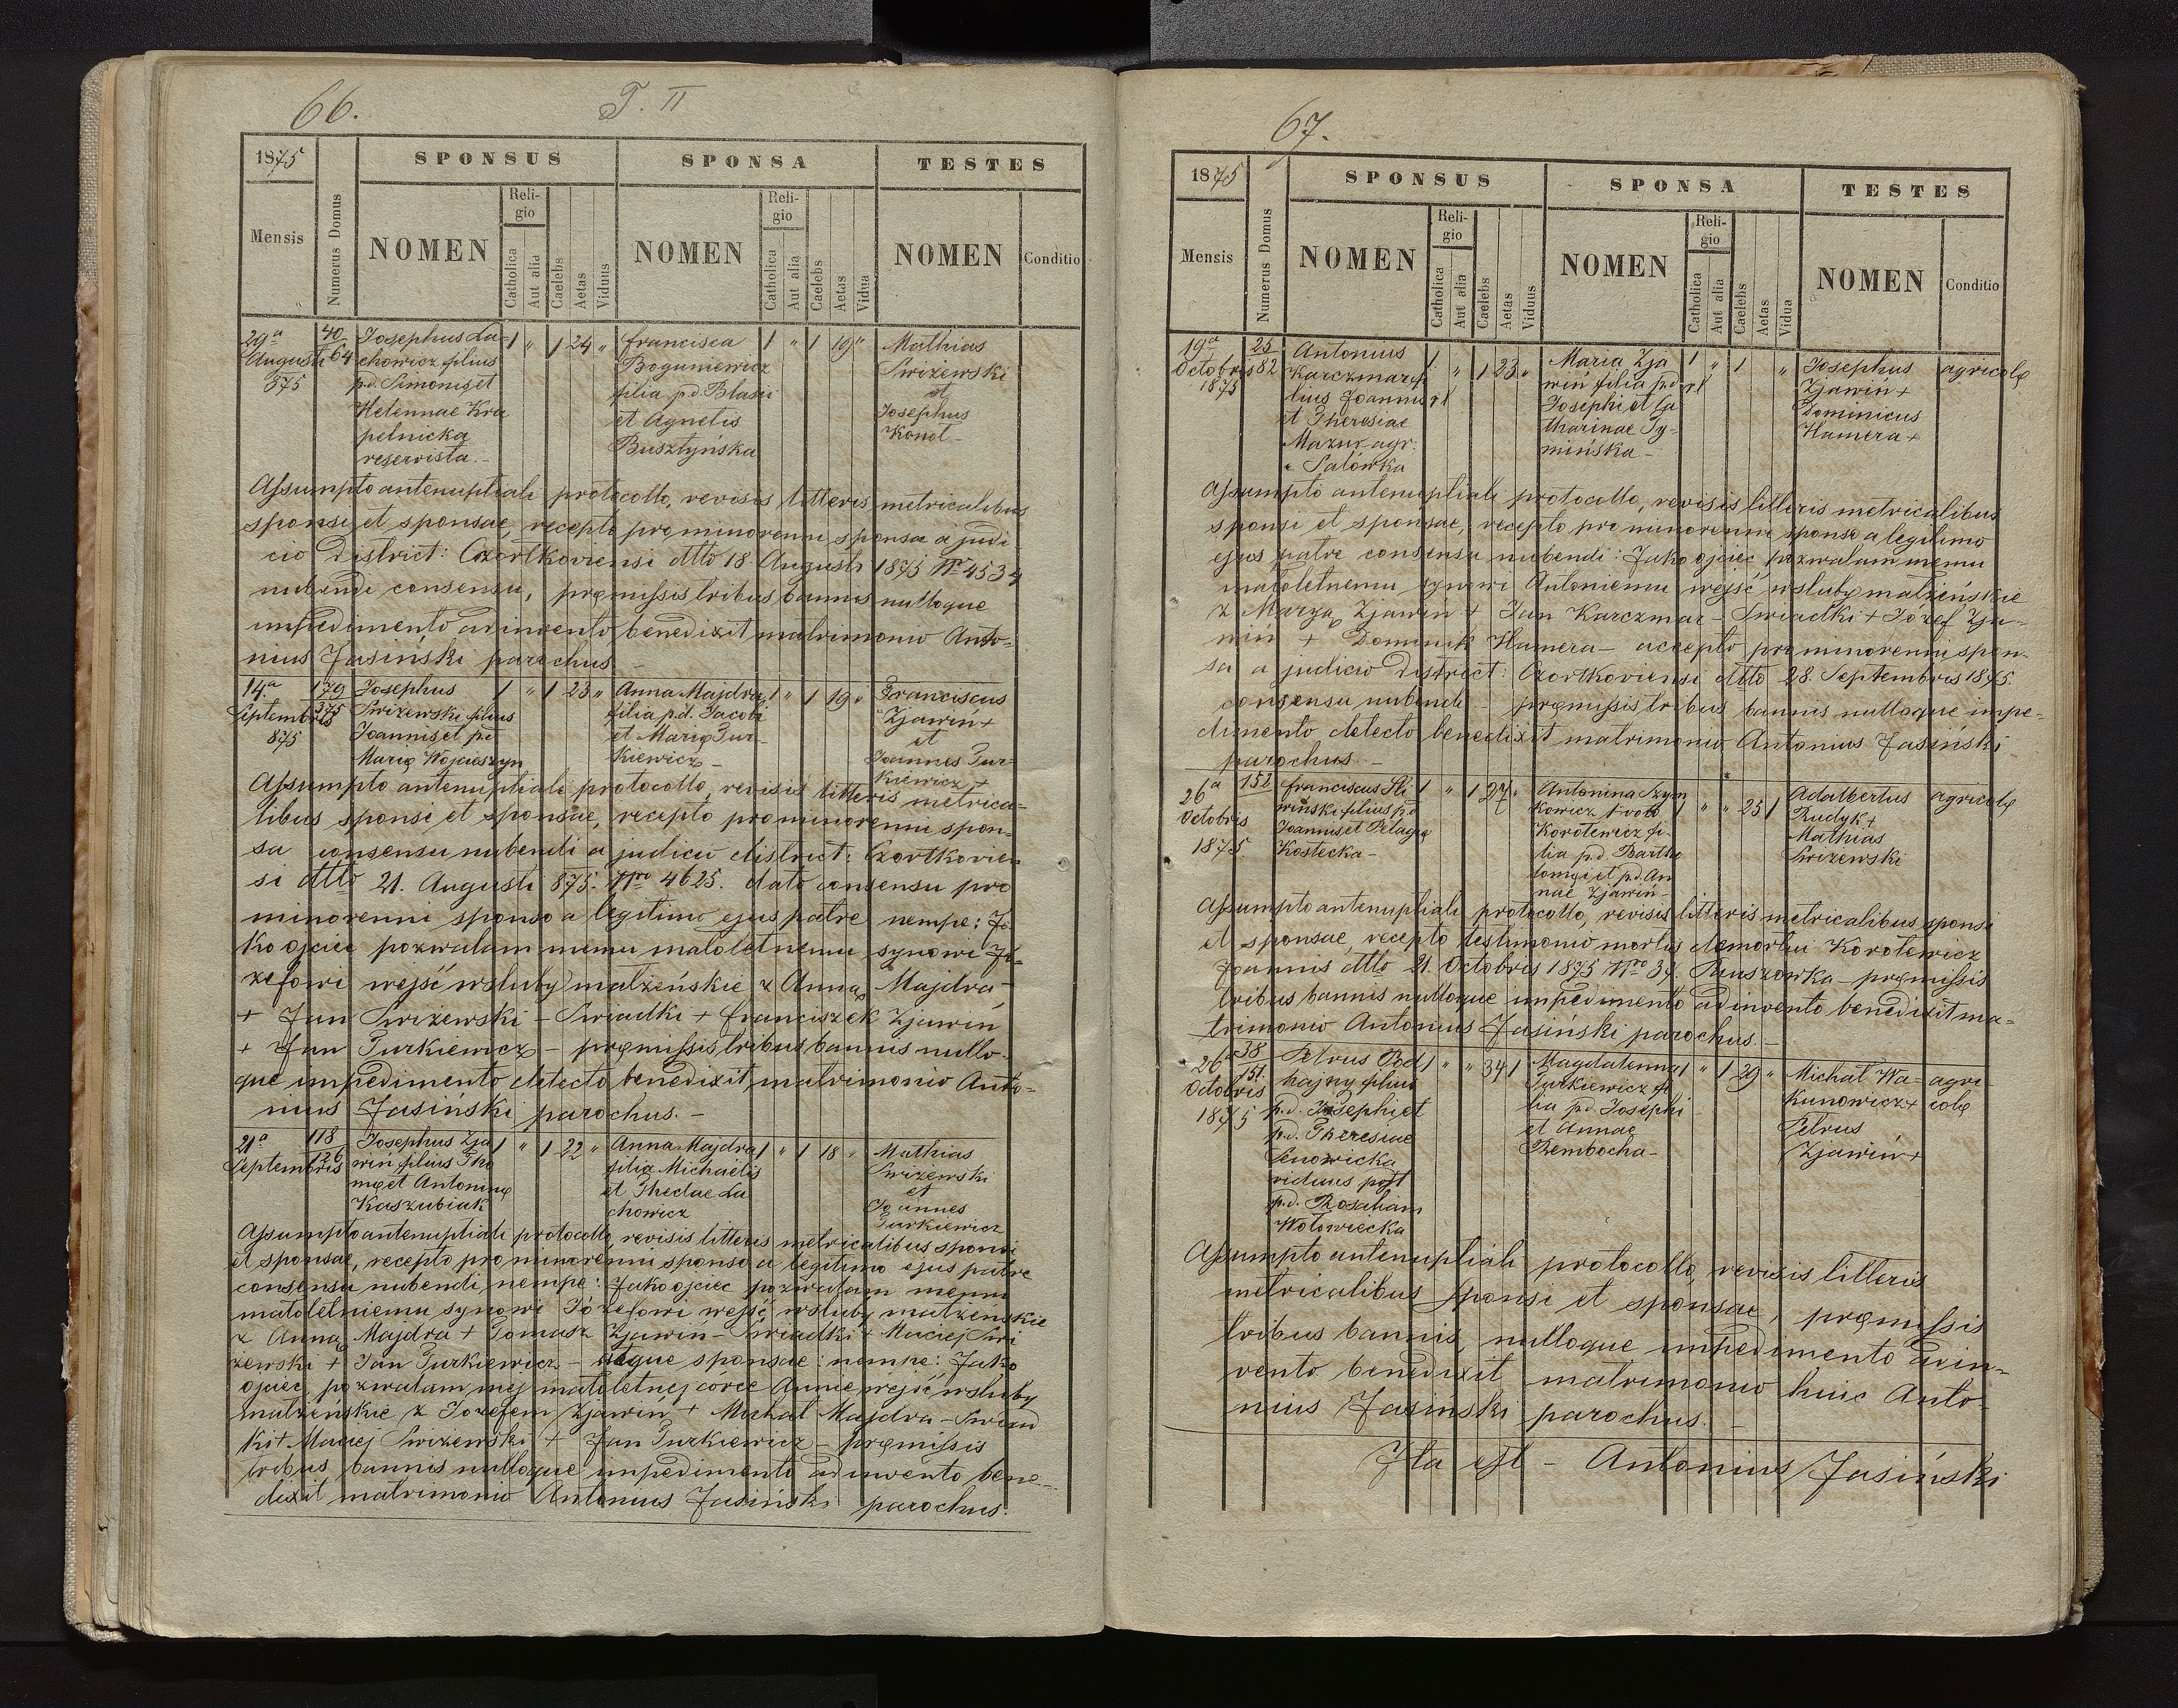 66.
T. II
1875
SPONSUS
SPONSA
TESTES
Mensis
Numerus Domus
NOMEN
Religio
Catholica
Aut alia
Caelebs
Aetas
Viduus
NOMEN
Religio
Catholica
Aut alia
Caelebs
Aetas
Vidua
NOMEN
Conditio
29a
Augusti
875
40
64
Josephus La-
chowicz filius
p.d. Simonis et
Helennae Kra
pelnicka
reservista.-
1 " 1 24 "
Francisca
Boguniewicz
filia p.d. Blasii
et Agnetis
Busztyńska
1 " 1 19 "
Mathias
Swizewski
et
Josephus
Konol-
Assumpto antenuptiali protocollo, revisis litteris metricalibus
sponsi et sponsae, recepto pro minorenni sponsa a judi
cio District: Czortkoviensi dtto 18 Augusti 1875 Nro 4534
nubendi consensu, pręmissis tribus bannis nulloque
impedimento adinvento benedixit matrimonio Anto-
nius Jasiński parochus.-
14a
Septembris
875
179
375
Josephus
Swizewski filius
Joannis et pd
Marię Wojciaszyn
1 " 1 23 "
Anna Majdra
filia p.d. Jacobi
et Marię Tur-
kiewicz-
1 " 1 19 "
Franciscus
Zjawin +
et
Joannes Tur-
kiewicz +
Assumpto antenuptiali protocollo, revisis litteris metrica-
libus sponsi et sponsae, recepto pro minorenni spon-
sa consensu nubendi a judicio district: Czortkovien
si dtto 21. Augusti 875. Nro 4625. dato consensu pro
minorenni sponso a legitimo ejus patre nempe: Ja
ko ojciec pozwalam memu małoletnemu synowi Jó-
zefowi wejść w sluby małżeńskie z Anną Majdra-
+ Jan Swiżewski - Swiadki + Franciszek Zjawin
+ Jan Turkiewicz - pręmissis tribus bannis nullo-
que impedimento detecto benedixit matrimonio Anto-
nius Jasiński parochus.-
21a
Septembris
118
126
Josephus Zja
win filius Tho
mę et Antoninę
Kaszubiak
1 " 1 22 "
Anna Majdra
filia Michaelis
et Theclae La
chowicz
1 " 1 18 "
Mathias
Swizewski
et
Joannes
Turkiewicz
Assumpto antenuptiali protocollo, revisis litteris metricalibus sponsi
et sponsae, recepto pro minorenni sponso a legitimo ejus patre
consensu nubendi nempe: Jako ojciec pozwalam memu
małoletniemu synowi Józefowi wejść w sluby małżeńskie
z Anną Majdra + Tomasz Zjawin - Swiadki + Maciej Swi
żewski + Jan Turkiewicz - atque sponsae: nempe: Jako
ojciec pozwalam mej małoletnej córce Annie wejść w sluby
małżeńskie z Jozefem Zjawin + Michał Majdra - Swiad
ki + Maciej Swizewski + Jan Turkiewicz - pręmissis
tribus bannis nulloque impedimento adinvento bene-
dixit matrimonio Antonius Jasiński parochus.
67.
1875
SPONSUS
SPONSA
TESTES
Mensis
Numerus Domus
NOMEN
Religio
Catholica
Aut alia
Caelebs
Aetas
Viduus
NOMEN
Religio
Catholica
Aut alia
Caelebs
Aetas
Vidua
NOMEN
Conditio
19a
Octobris
1875
25
82
Antonius
Karczmar fi
lius Joannis
et Theresiae
Mazur agr:
Salówka
1 " 1 23 "
Maria Zja
win filia p.d
Josephi et Ca
tharinae Ty-
mińska-
1 " 1 "
Josephus
Zjawin +
Dominicus
Hamera +
agricolę
Assumpto antenuptiali protocollo, revisis litteris metricalibus
sponsi et sponsae, recepto pro minorenni sponso a legitimo
ejus patre consensu nubendi: Jako ojciec pozwalam memu
małoletnemu synowi Antoniemu wejść w sluby małżeńskie
z Maryą Zjawin + Jan Karczmar - Swiadki + Józef Zja-
win + Dominik Hamera - accepto pro minorenni spon-
sa a judicio District: Czortkoviensi dtto 28. Septembris 1875.
consensu nubendi - pręmissis tribus bannis nulloque impe-
dimento detecto benedixit matrimonio Antonius Jasiński
parochus.-
26a
Octobris
1875.
152
Franciscus Sli
wiński filius p.d
Joannis et Pelagię
Kostecka-
1 " 1 27 "
Antonina Szym
kowicz 1 voto
Korolewicz fi-
lia p.d. Bartho
lomęi et p.d. An
nae Zjawin-
1 " " 25 1
Adalbertus
Rudyk +
Mathias
Swizewski
agricolę
Assumpto antenuptiali protocollo, revisis litteris metricalibus sponsi
et sponsae, recepto testimonio mortis demortui Korolewicz
Joannis dtto 21. Octobris 1875 Nro 34. Rruszowka - pręmissis
tribus bannis nulloque impedimento adinvento benedixit ma-
trimonio Antonius Jasiński parochus.-
26a
Octobris
1875
38
151
Petrus Pod
hajny filius
p.d. Josephi et
p.d. Theresiae
Senowicka
viduus post
p.d. Rosaliam
Wołowiecka
1 " " 34 1
Magdalenna
Turkiewicz fi
lia p.d. Josephi
et Annae
Rembocha-
1 " 1 29 "
Michał Wa-
kunowicz +
Petrus
Zjawin +
agri
colę
Assumpto antenuptiali protocollo, revisis litteris
metricalibus sponsi et sponsae, pręmissis
tribus bannis, nulloque impedimento adin-
vento benedixit matrimonio huic Anto-
nius Jasiński parochus.-
Ita est - Antonius Jasiński